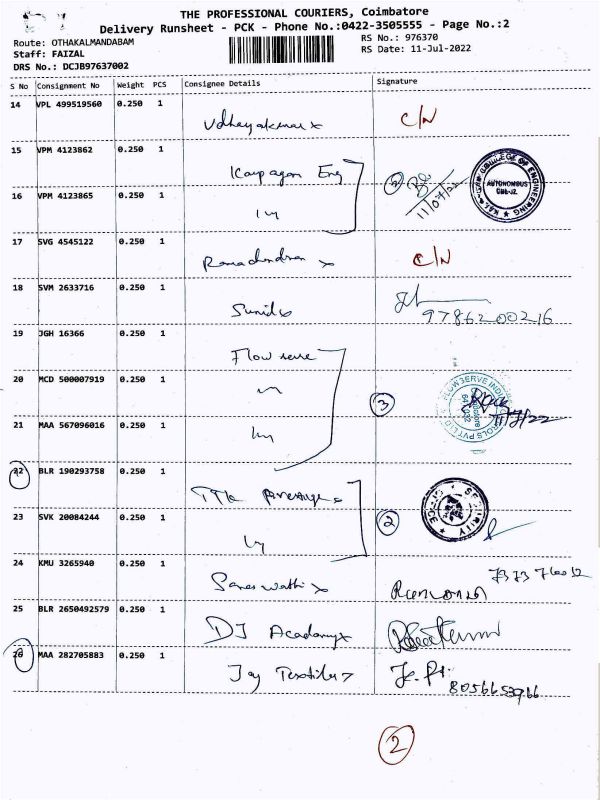 THE PROFESSIONAL COURIERS, Coimbatore
Delivery Runsheet - PCK - Phone No.:0422-3505555 - Page No.:2
Route: OTHAKALMANDABAM
RS No.: 976370
Staff: FAIZAL
RS Date: 11-Jul-2022
DRS No.: DCJB97637002
S No Consignment No Weight PCS Consignee Details Signature
14 VPL 499519560 0.250 1
Udhayakumar C/N
15 VPM 4123862 0.250 1
Karpagam Eng 2 11/07/22
COLLEGE OF ENGINEERING AUTONOMOUS
16 VPM 4123865 0.250 1
17 SVG 4545122 0.250 1
Ramachandran C/N
18 SVM 2633716 0.250 1
Sunil 9786200216
19 JGH 16366 0.250 1
Flow serve
20 MCD 500007919 0.250 1
3 FLOWSERVE 11/7/22
21 MAA 567096016 0.250 1
22 BLR 190293758 0.250 1
SECURITY OFFICE
23 SVK 20084244 0.250 1
2
24 KMU 3265940 0.250 1
Saraswathi
25 BLR 2650492579 0.250 1
DJ Academy
26 MAA 282705883 0.250 1
Jay Textiles
2